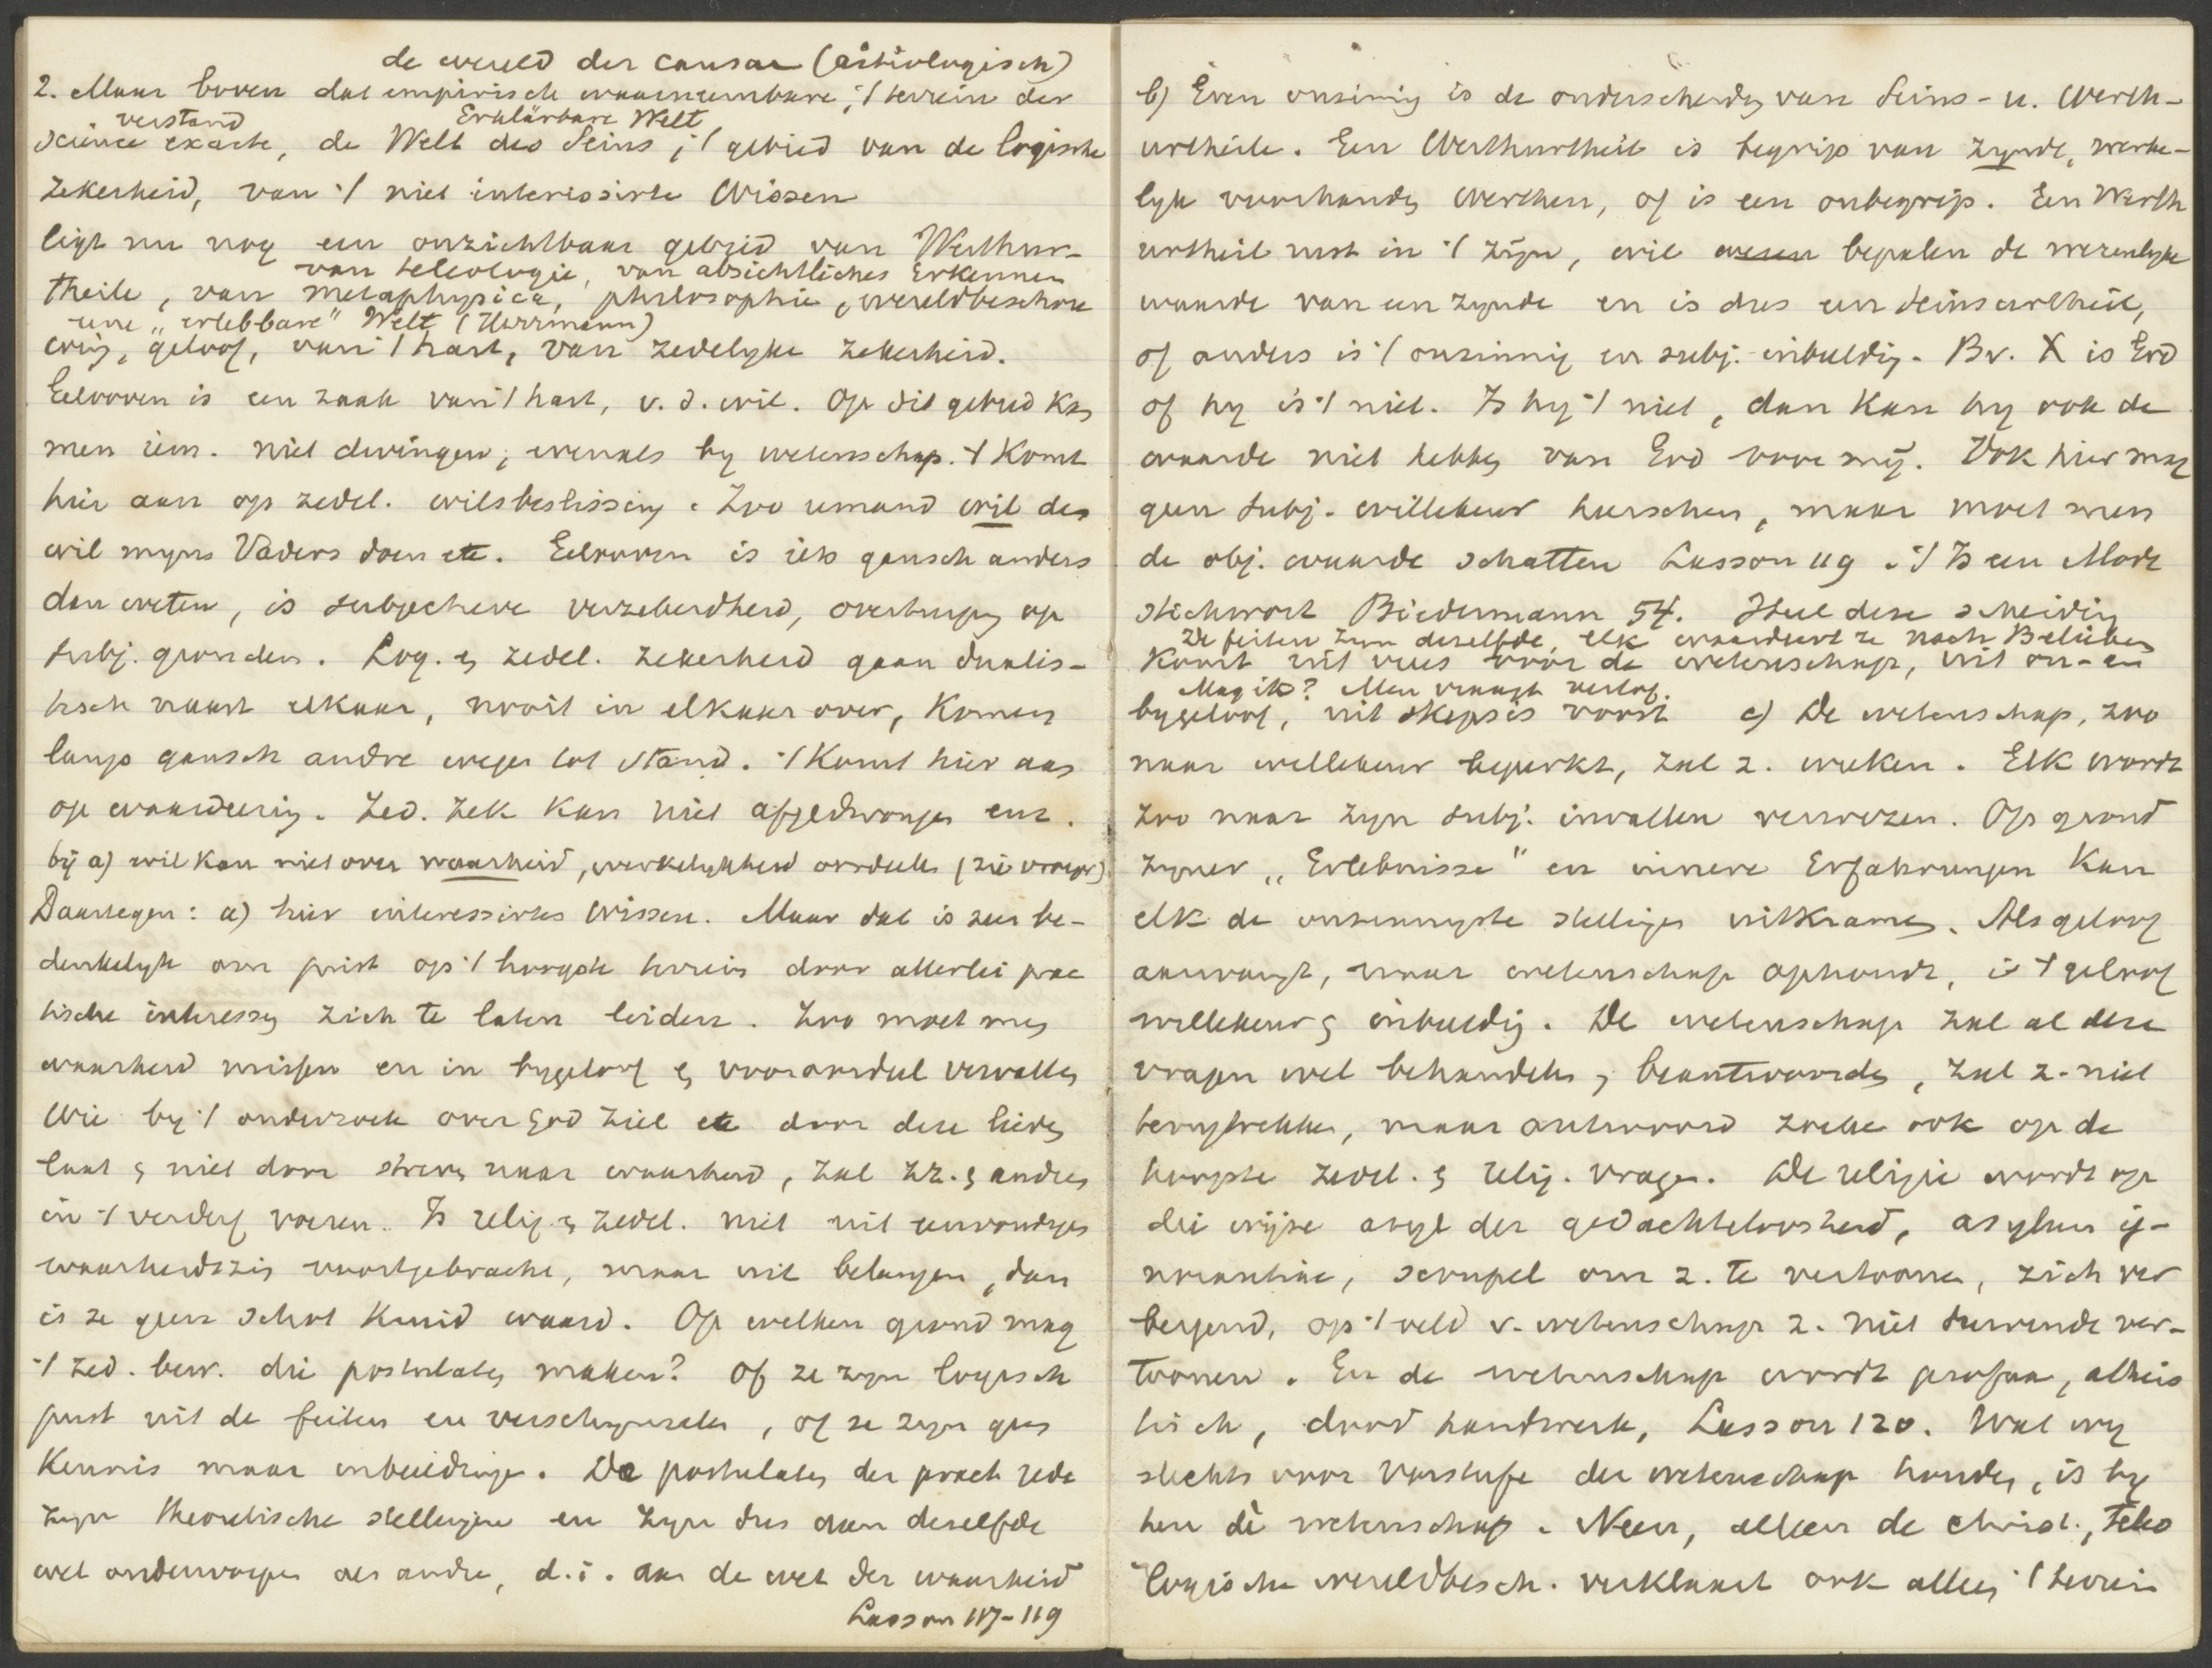 de wereld der causae (aetiologisch)
2. Maar boven dat empirisch waarneembare, 't terrein der
verstand Erklärbare Welt
science exacte, de Welt des Seins, 't gebied van de logische
zekerheid, van 't niet interessirte Wissen
ligt nu nog een onzichtbaar gebied van Werthur-
van teleologie, van absichtliches Erkennen
theile, van metaphysica, philosophie, wereldbeschou
eene „erlebbare" Welt (Herrmann)
wing, geloof, van 't hart, van zedelyke zekerheid.
Gelooven is een zaak van 't hart, v. d. wil. Op dit gebied kan
men iem. niet dwingen, evenals by wetenschap. 't Komt
hier aan op zedel. wilsbeslissing. Zoo iemand wil des
wil myns Vaders doen etc. Gelooven is iets gansch anders
dan weten, is subjectieve verzekerdheid, overtuiging op
subj. gronden. Log. en zedel. zekerheid gaan dualis-
tisch naast elkaar, nooit in elkaar over, komen
langs gansch andre wegen tot stand. 't Komt hier aan
op waardeering. Zed. zek kan niet afgedwongen enz.
bij a) wil kan niet over waarheid, werkelykheid oordeelen (zie vroeger)
Daartegen: a) hier interessirtes Wissen. Maar dat is zeer be-
denkelyk om juist op 't hoogste terrein door allerlei prac
tische interessen zich te laten leiden. Zoo moet men
waarheid missen en in bygeloof en vooroordeel vervallen
Wie by 't onderzoek over God ziel etc door deze leiden
laat en niet door streven naar waarheid, zal zz. en andren
in 't verderf voeren. Is relig. en zedel. niet uit eenvoudigen
waarheidszin voortgebracht, maar uit belangen, dan
is ze geen schot kruid waard. Op welken grond mag
't zed. bew. die postulaten maken? Of ze zyn logisch
juist uit de feiten en verschynselen, of ze zyn geen
Kennis maar inbeeldingen. De postulaten der pract rede
zyn theoretische stellingen en zyn dus aan dezelfde
wet onderworpen als andre, d.i. aan de wet der waarheid
Lasson 117-119
b) Even onzinnig is de onderscheiding van Seins- u. Werth-
urtheile. Een Werthurtheil is begrip van zynde, werke-
lyk voorhanden Werthen, of is een onbegrip. Een Werth
urtheil rust in 't zijn, wil wesen bepalen de wezenlyke
waarde van een zynde en is dus een Seinsurtheil,
of anders is 't onzinnig en subj. inbeelding. Bv. X is God
of hy is 't niet. Is hy 't niet, dan kan hy ook de
waarde niet hebben van God voor mij. Ook hier mag
geen subj. willekeur heerschen, maar moet men
de obj. waarde schatten Lasson 119. 't Is een Mode
stichwort Biedermann 54. Heel deze scheiding
De feiten zyn dezelfde, elk waardeert ze nach Belieben
komt uit vrees voor de wetenschap, uit on- en
Mag ik? Men vraagt verlof.
bygeloof, uit skepsis voort c) De wetenschap, zoo
naar willekeur beperkt, zal z. wreken. Elk wordt
zoo naar zyn subj. invallen verwezen. Op grond
zyner „Erlebnisse" en innere Erfahrungen kan
elk de onzinnigste stellingen uitkramen. Als geloof
aanvangt, waar wetenschap ophoudt, is 't geloof
willekeur en inbeelding. De wetenschap zal al deze
vragen wel behandelen, beantwoorden, zal z. niet
terugtrekken, maar antwoord zoeken ook op de
hoogste zedel. en relig. vragen. De religie wordt op
die wijze asyl der gedachteloosheid, asylum ig-
norantiae, scrupel om z. te vertoonen, zich ver
bergend, op 't veld v. wetenschap z. niet durvende ver-
toonen. En de wetenschap wordt profaan, atheis
tisch, dood handwerk, Lasson 120. Wat wy
slechts voor Vorstufe der wetenschap houden, is by
hen dè wetenschap. Neen, alleen de christ., teleo
logische wereldbesch. verklaart ook alleen 't terrein